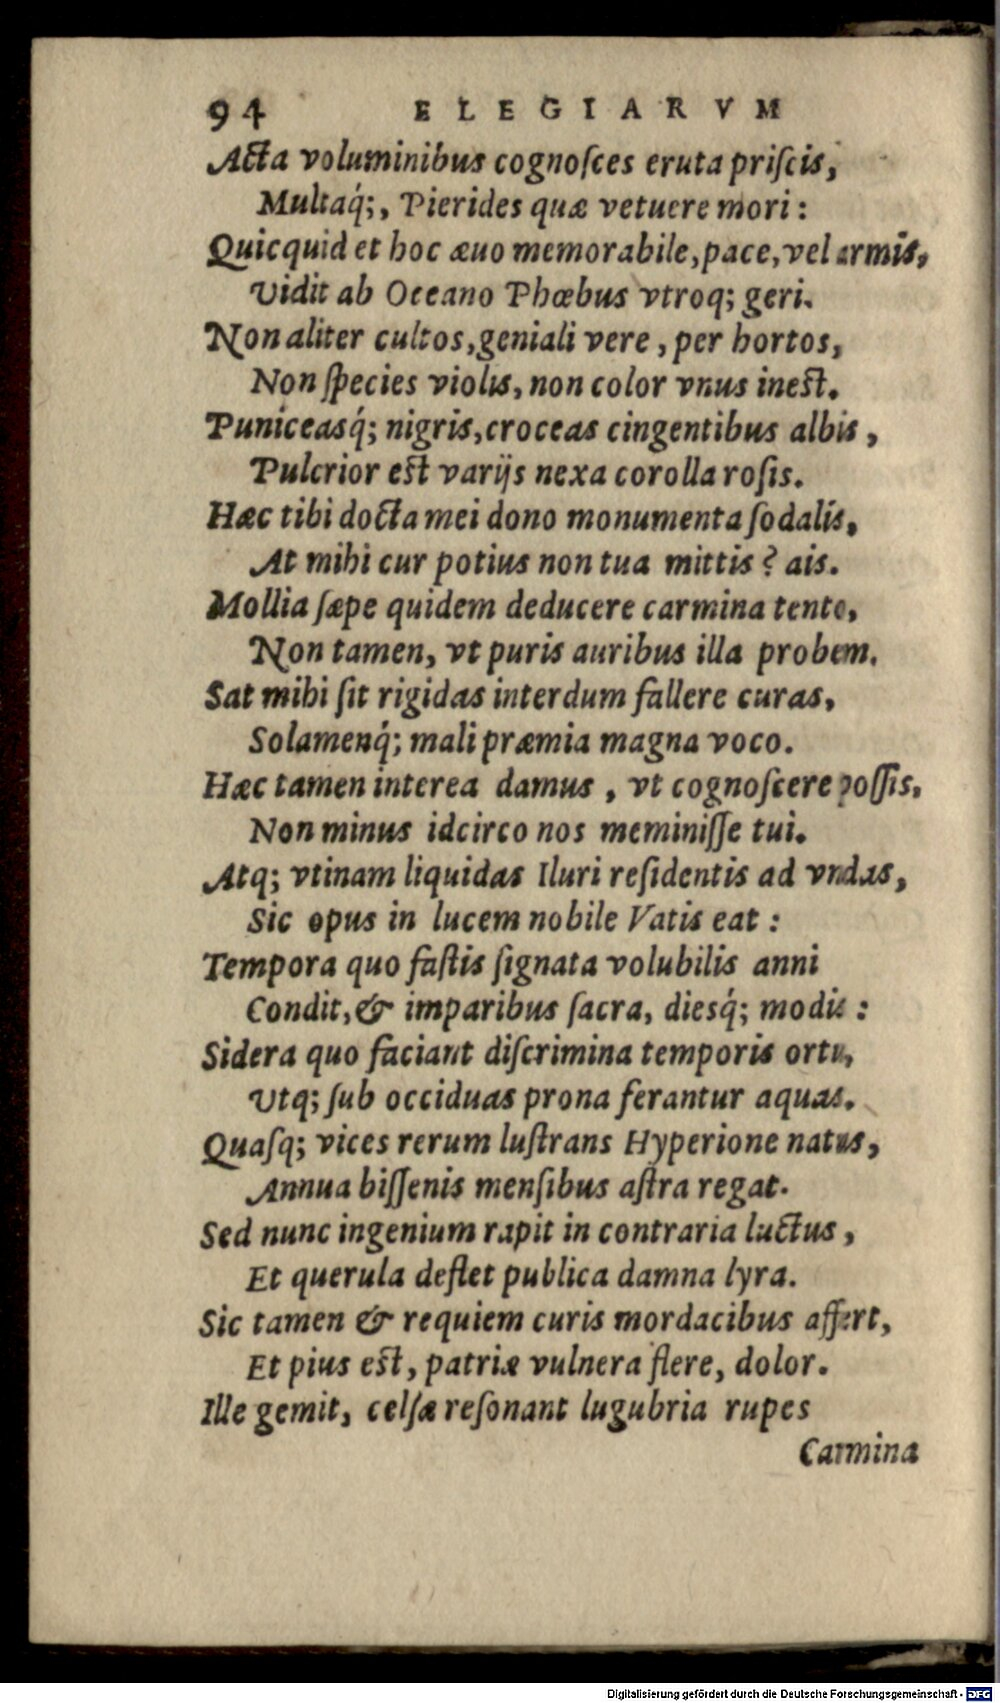 94 ELEGIARVM
Acta voluminibus cognoſces eruta priſcis,
Multaq́;, Pierides quæ vetuere mori:
Quicquid et hoc æuo memorabile, pace, vel armis,
Vidit ab Oceano Phœbus vtroq; geri.
Non aliter cultos, geniali vere, per hortos,
Non ſpecies violis, non color vnus ineſt.
Puniceasq́; nigris, croceas cingentibus albis,
Pulcrior eſt varijs nexa corolla roſis.
Hæc tibi docta mei dono monumenta ſodalis,
At mihi cur potius non tua mittis? ais.
Mollia ſæpe quidem deducere carmina tento,
Non tamen, vt puris auribus illa probem.
Sat mihi ſit rigidas interdum fallere curas,
Solamenq́; mali præmia magna voco.
Hæc tamen interea damus, vt cognoſcere poſſis,
Non minus idcirco nos meminiſſe tui.
Atq; vtinam liquidas Iluri reſidentis ad vndas,
Sic opus in lucem nobile Vatis eat:
Tempora quo faſtis ſignata volubilis anni
Condit, & imparibus ſacra, diesq́; modis:
Sidera quo faciant diſcrimina temporis ortu,
Vtq; ſub occiduas prona ferantur aquas.
Quaſq; vices rerum luſtrans Hyperione natus,
Annua biſſenis menſibus aſtra regat.
Sed nunc ingenium rapit in contraria luctus,
Et querula deflet publica damna lyra.
Sic tamen & requiem curis mordacibus affert,
Et pius eſt, patriæ vulnera flere, dolor.
Ille gemit, celſæ reſonant lugubria rupes
Carmina
Digitalisierung gefördert durch die Deutsche Forschungsgemeinschaft - DFG